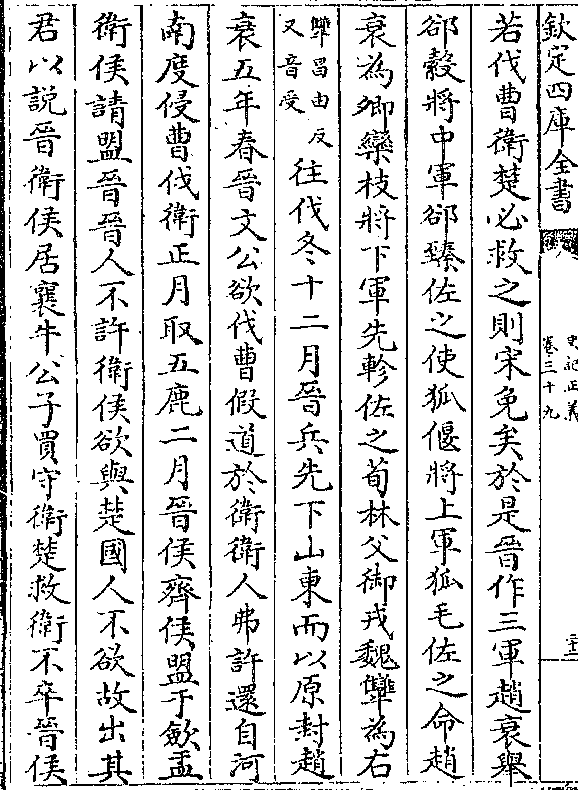 欽定四庫全書
史記正義
卷三十九
三十二
若伐曹衛楚必救之則宋免矣於是晉作三軍趙衰舉
郤縠將中軍郤臻佐之使狐偃將上軍狐毛佐之命趙
衰為卿欒枝將下軍先軫佐之荀林父御戎魏犨為右
犨昌由反
又音受
往伐冬十二月晉兵先下山東而以原封趙
衰五年春晉文公欲伐曹假道於衛衛人弗許還自河
南度侵曹伐衛正月取五鹿二月晉侯齊侯盟于斂盂
衛侯請盟晉晉人不許衛侯欲與楚國人不欲故出其
君以說晉衛侯居襄牛公子買守衛楚救衛不卒晉侯